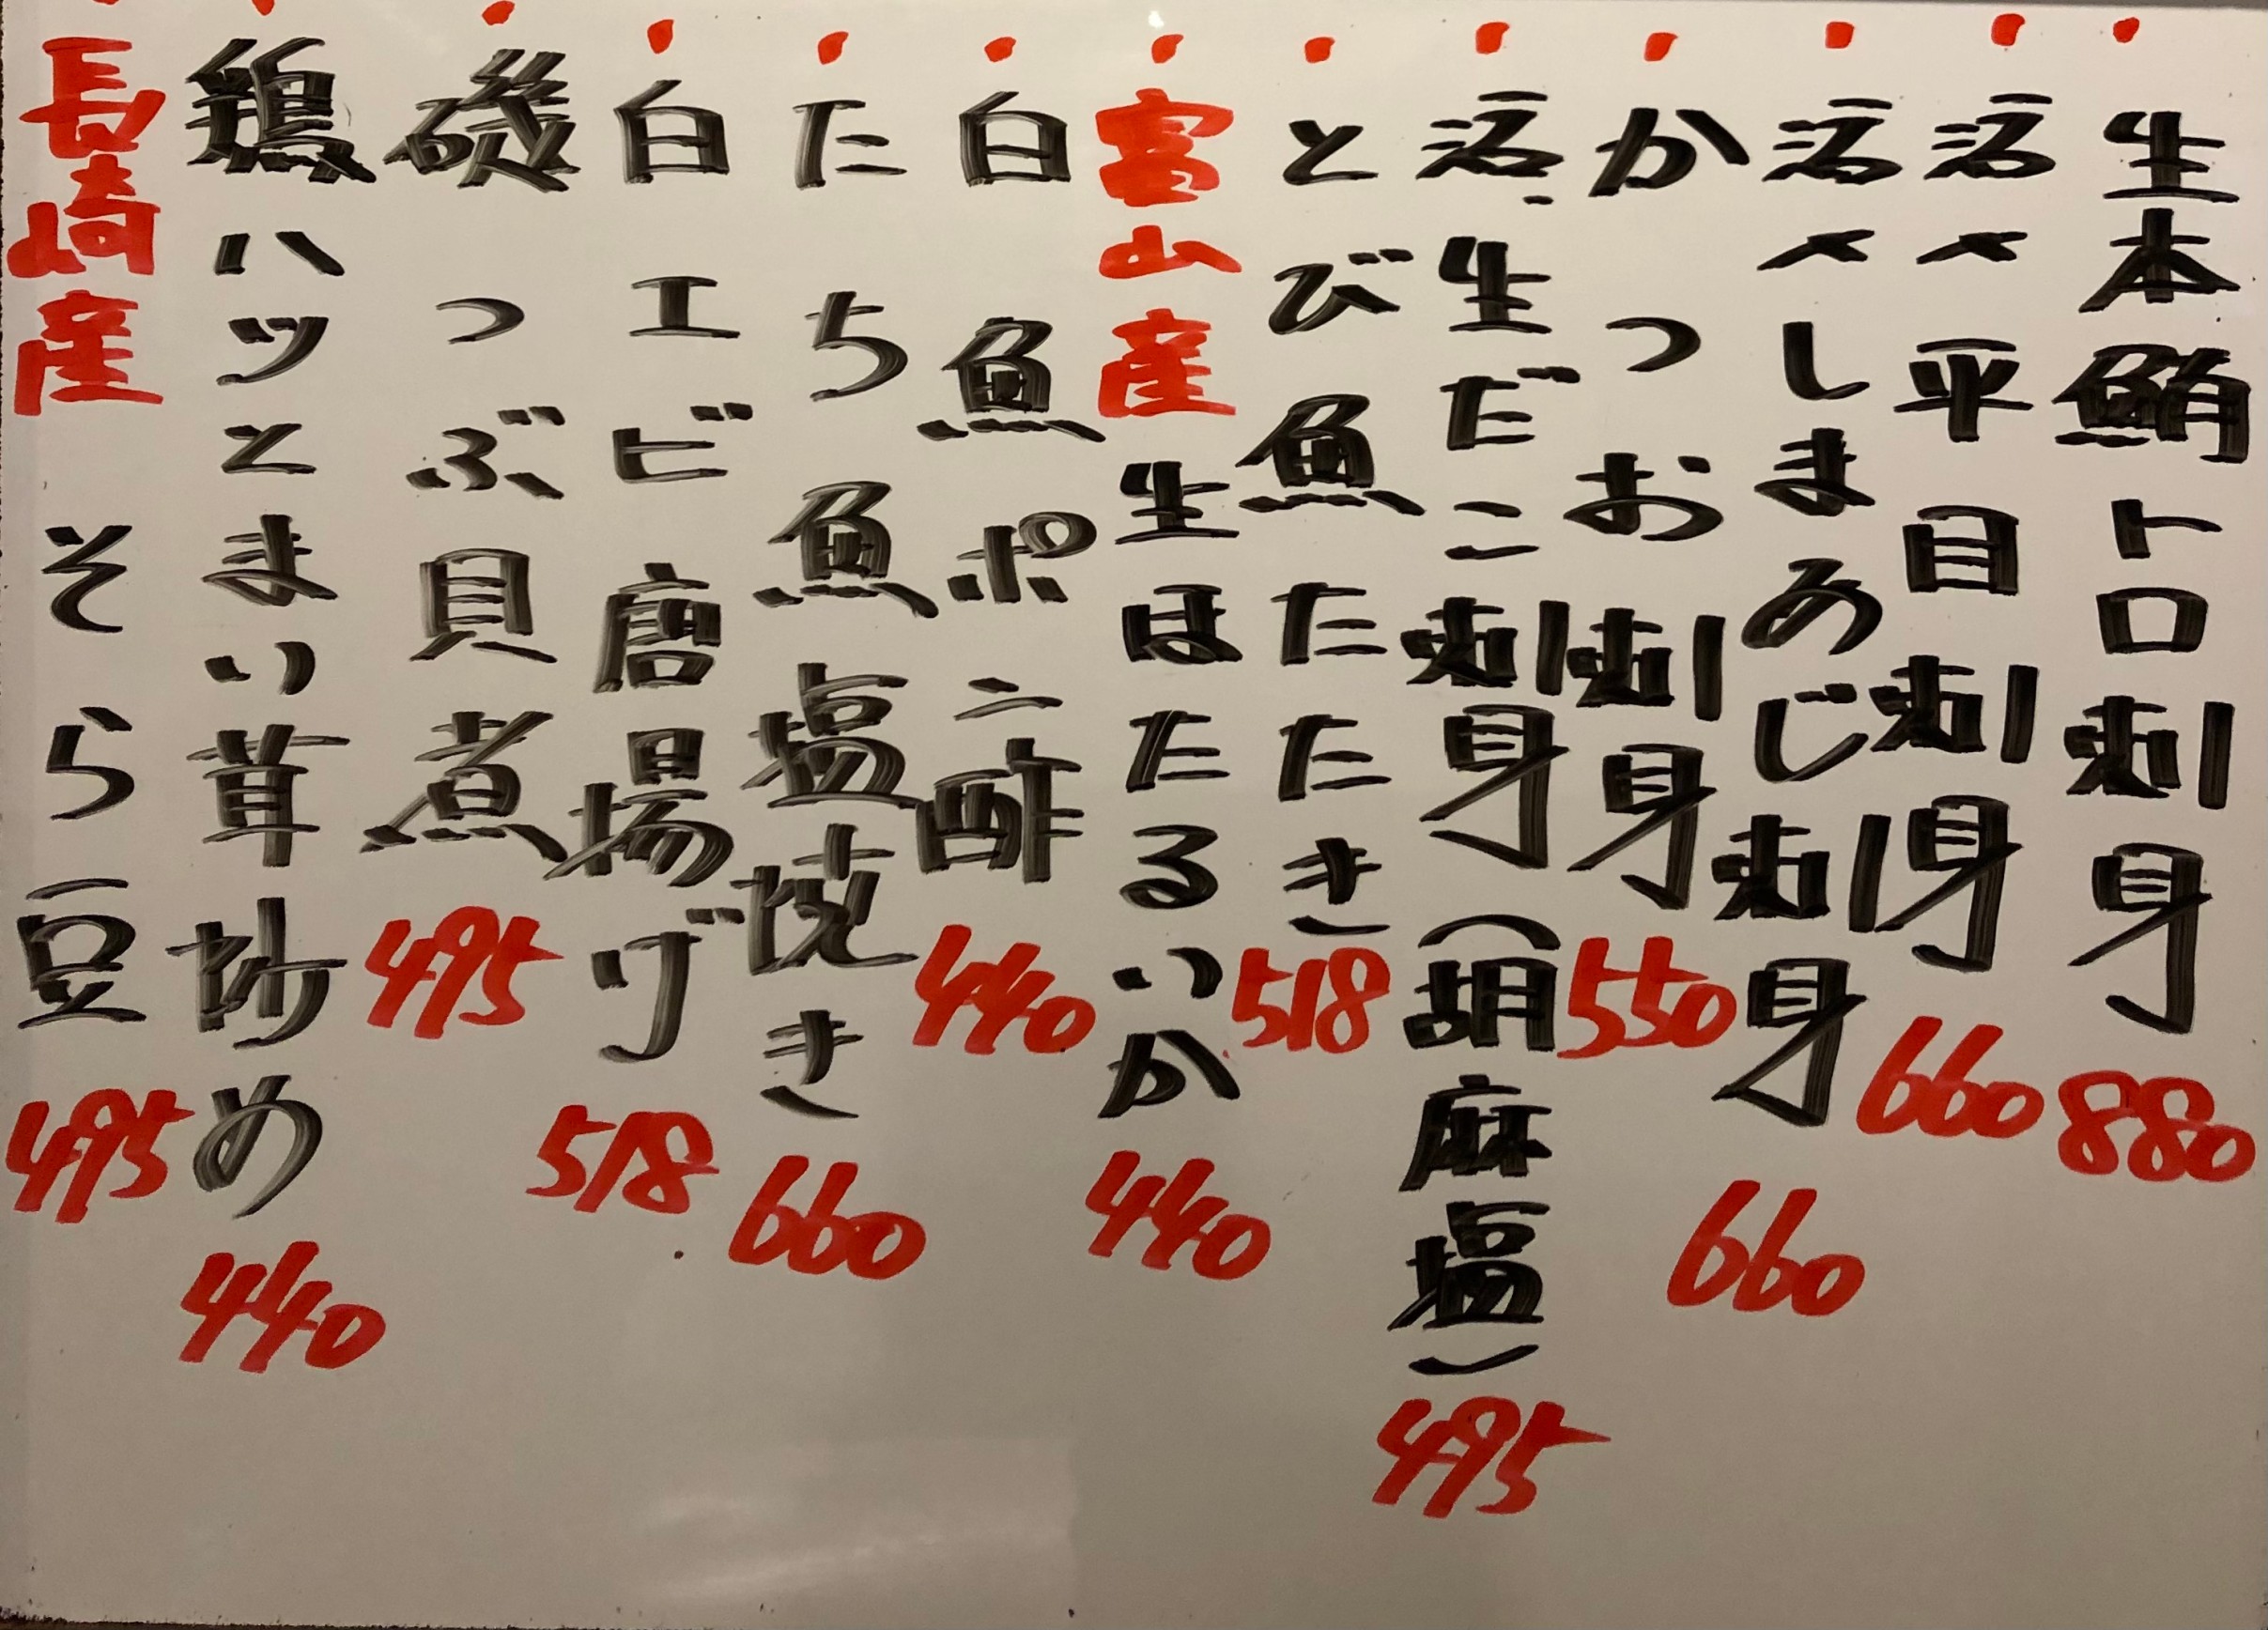 生本鮪トロ刺身 880
活〆平目刺身 660
活〆しまあじ刺身 660
かつお刺身 550
活〆生だこ刺身(胡麻塩) 495
とび魚たたき 518
富山産 生ほたるいか 440
白魚ポン酢 440
たち魚塩焼き 660
白エビ唐揚げ 518
磯つぶ貝煮 495
鶏ハツとまい茸炒め 440
長崎産 そら豆 495